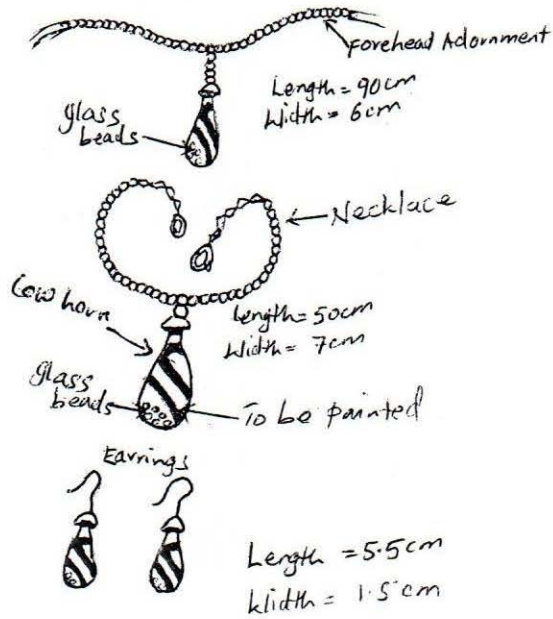 Forehead Adornment
Length = 90cm
Width = 6cm
glass
beads
Necklace
Cow horn
Length = 50cm
Width = 7cm
glass
beads
To be painted
Earrings
Length = 5.5cm
Width = 1.5cm